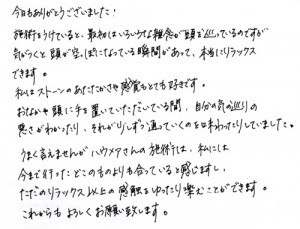 今日もありがとうございました！
施術をうけていると、最初はいろいろな雑念が頭を巡っているのですが
気がつくと頭が空っぽになっている瞬間があって、本当にリラックス
できます。
私はストーンのあたたかさや感覚もとても好きです。
おなかや頭に手を置いていただいている間、自分の気の巡りの
悪さがわかったり、それが少しずつ通っていくのを味わったりしていました。
うまく言えませんがハウメアさんの施術は、私には
今まで行ったどこのものよりも合っていると感じますし、
ただのリラックス以上の感触をゆったり楽むことができます。
これからも よろしくお願い致します。